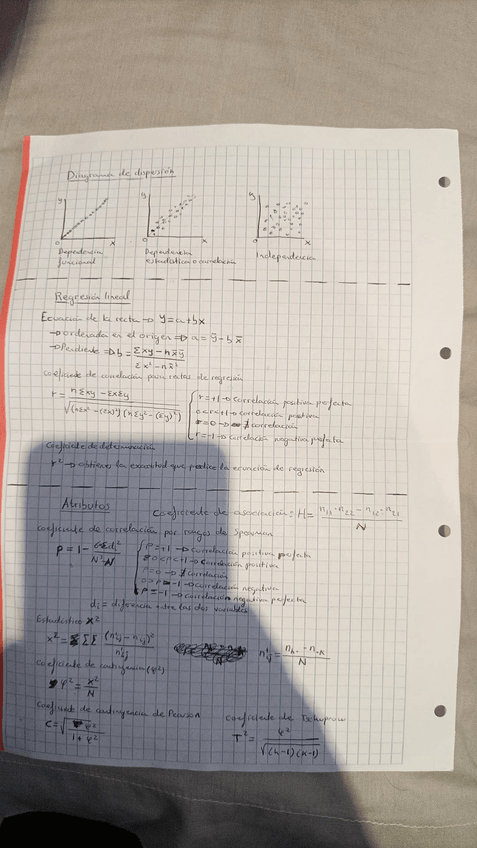 Diagrama de dispersión
y
x
0
y
x
0
y
x
0
Dependencia
funcional
Dependencia
estadística o correlación
Independencia
Regresión lineal
Ecuación de la recta → y = a + bx
→ ordenada en el origen ⇒ a = ȳ - b x̄
→ Pendiente ⇒ b = (Σxy - n x̄ȳ) / (Σx² - n x̄²)
Coeficiente de correlación para rectas de regresión
r = (nΣxy - ΣxΣy) / √((nΣx² - (Σx)²)(nΣy² - (Σy)²))
r = +1 → correlación positiva perfecta
0 < r < +1 → correlación positiva
r = 0 → ∄ correlación
r = -1 → correlación negativa perfecta
Coeficiente de determinación
r² → obtiene la exactitud que predice la ecuación de regresión
Atributos
Coeficiente de asociación: H = (n₁₁·n₂₂ - n₁₂·n₂₁) / N
Coeficiente de correlación por rangos de Spearman
ρ = 1 - 6Σdᵢ² / (N³-N)
ρ = +1 → correlación positiva perfecta
0 < ρ < +1 → correlación positiva
ρ = 0 → ∄ correlación
0 > ρ > -1 → correlación negativa
ρ = -1 → correlación negativa perfecta
dᵢ = diferencia entre las dos variables
Estadístico X²
x² = ΣΣ (nᵢⱼ - n'ᵢⱼ)² / n'ᵢⱼ
n'ᵢⱼ = n_h· · n_·k / N
Coeficiente de contingencia (φ²)
φ² = x² / N
Coeficiente de contingencia de Pearson
C = √(φ² / (1 + φ²))
Coeficiente de Tschuprow
T² = φ² / √((h-1)(k-1))